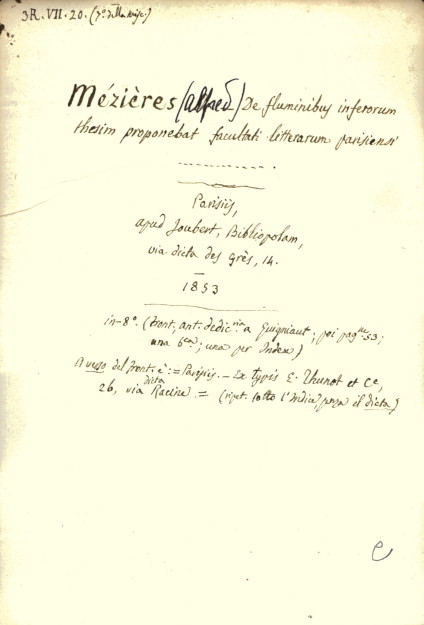 3R. VII. 20. (7º della
Mézières (Alfred) De fluminibus inferorum
thesim proponebat facultati litterarum parisiensi
Parisiis,
apud Joubert, Bibliopolam,
via dicta des Grès, 14.
1853
in-8º. (Front., ant. dedic.ria a Guigniaut; poi pag.ne 53;
una 6ca; una per Index)
A verso del front. è: = Parisiis. - Ex typis E. Thunot et Cº,
26, via dicta Racine. = (ripet. sotto l'Indice, senza il dicta)